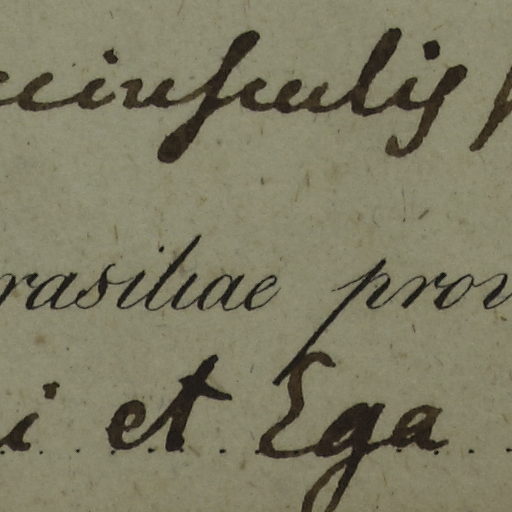 insulis
rasiliae prov
i et Ega